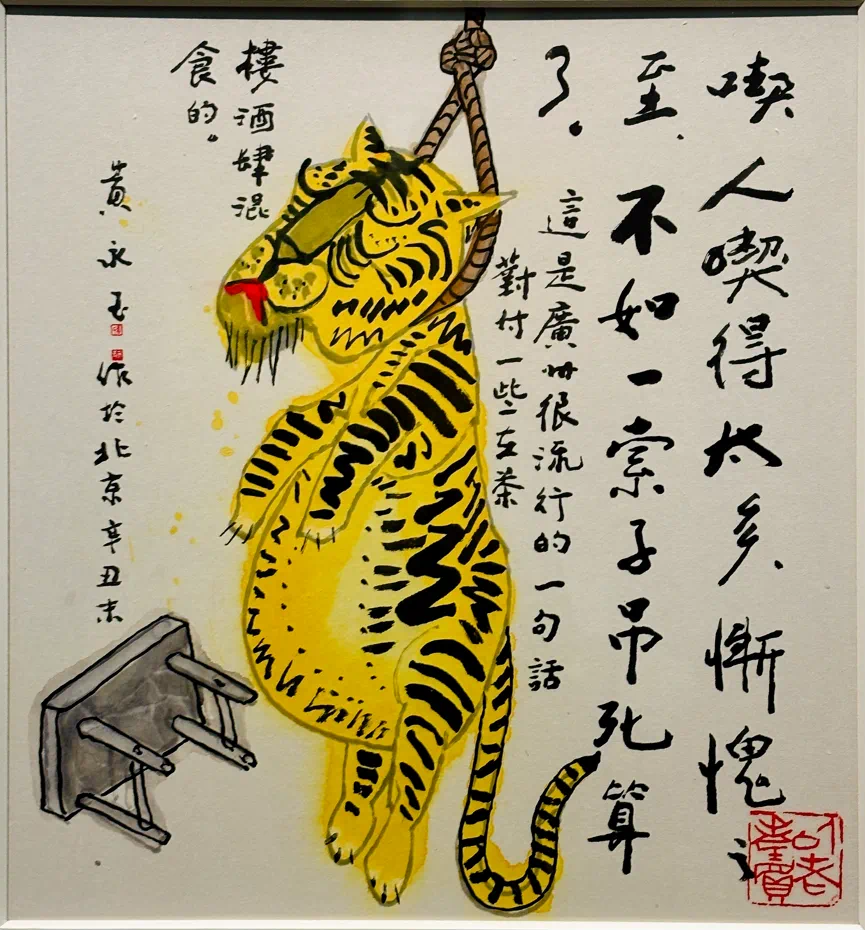 喫人喫得太多慚愧之
至、不如一索子吊死算
了。
這是廣州很流行的一句話
對付一些在茶
樓酒肆混
食的。
黃永玉作於北京辛丑末